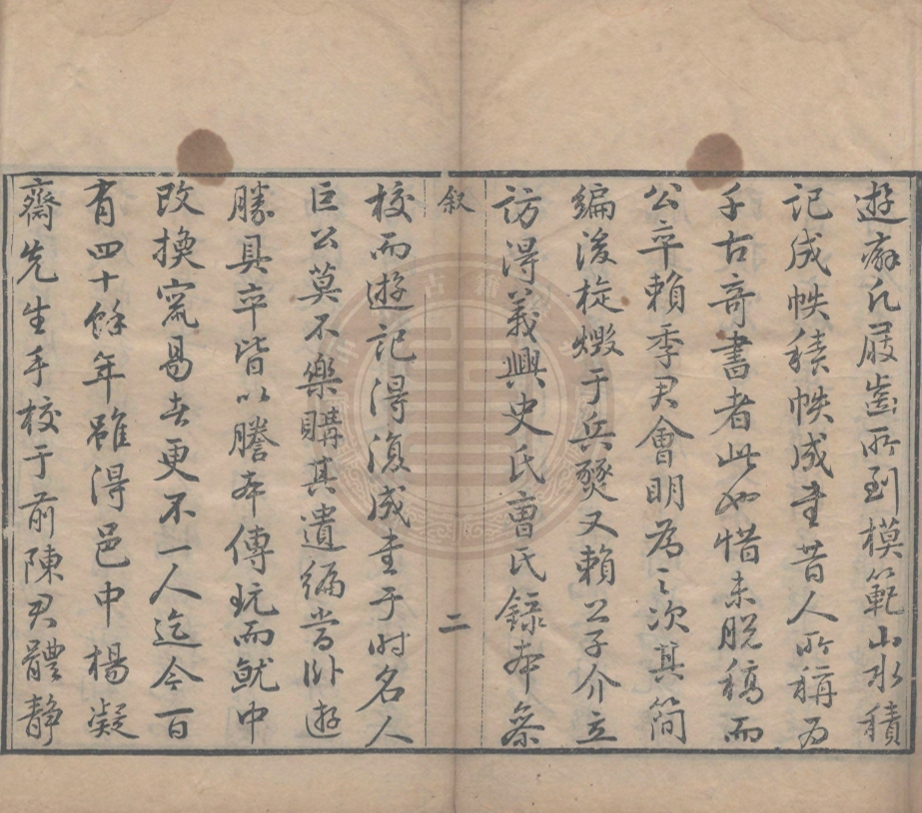 遊癖凡屐齒所到模範山水積
記成帙積帙成書昔人所稱为
千古奇書者此也惜未脫稿而
公卒賴季君會明為之次其簡
編後旋燬于兵燹又賴公子介立
訪得義興史氏曹氏錄本叅
叙
二
校而遊記得復成書于时名人
巨公莫不樂購其遺編當臥遊
勝具卒皆以謄本傳玩而就中
改換竄易者更不一人迄今百
有四十餘年雖得邑中楊凝
齋先生手校于前陳君體靜